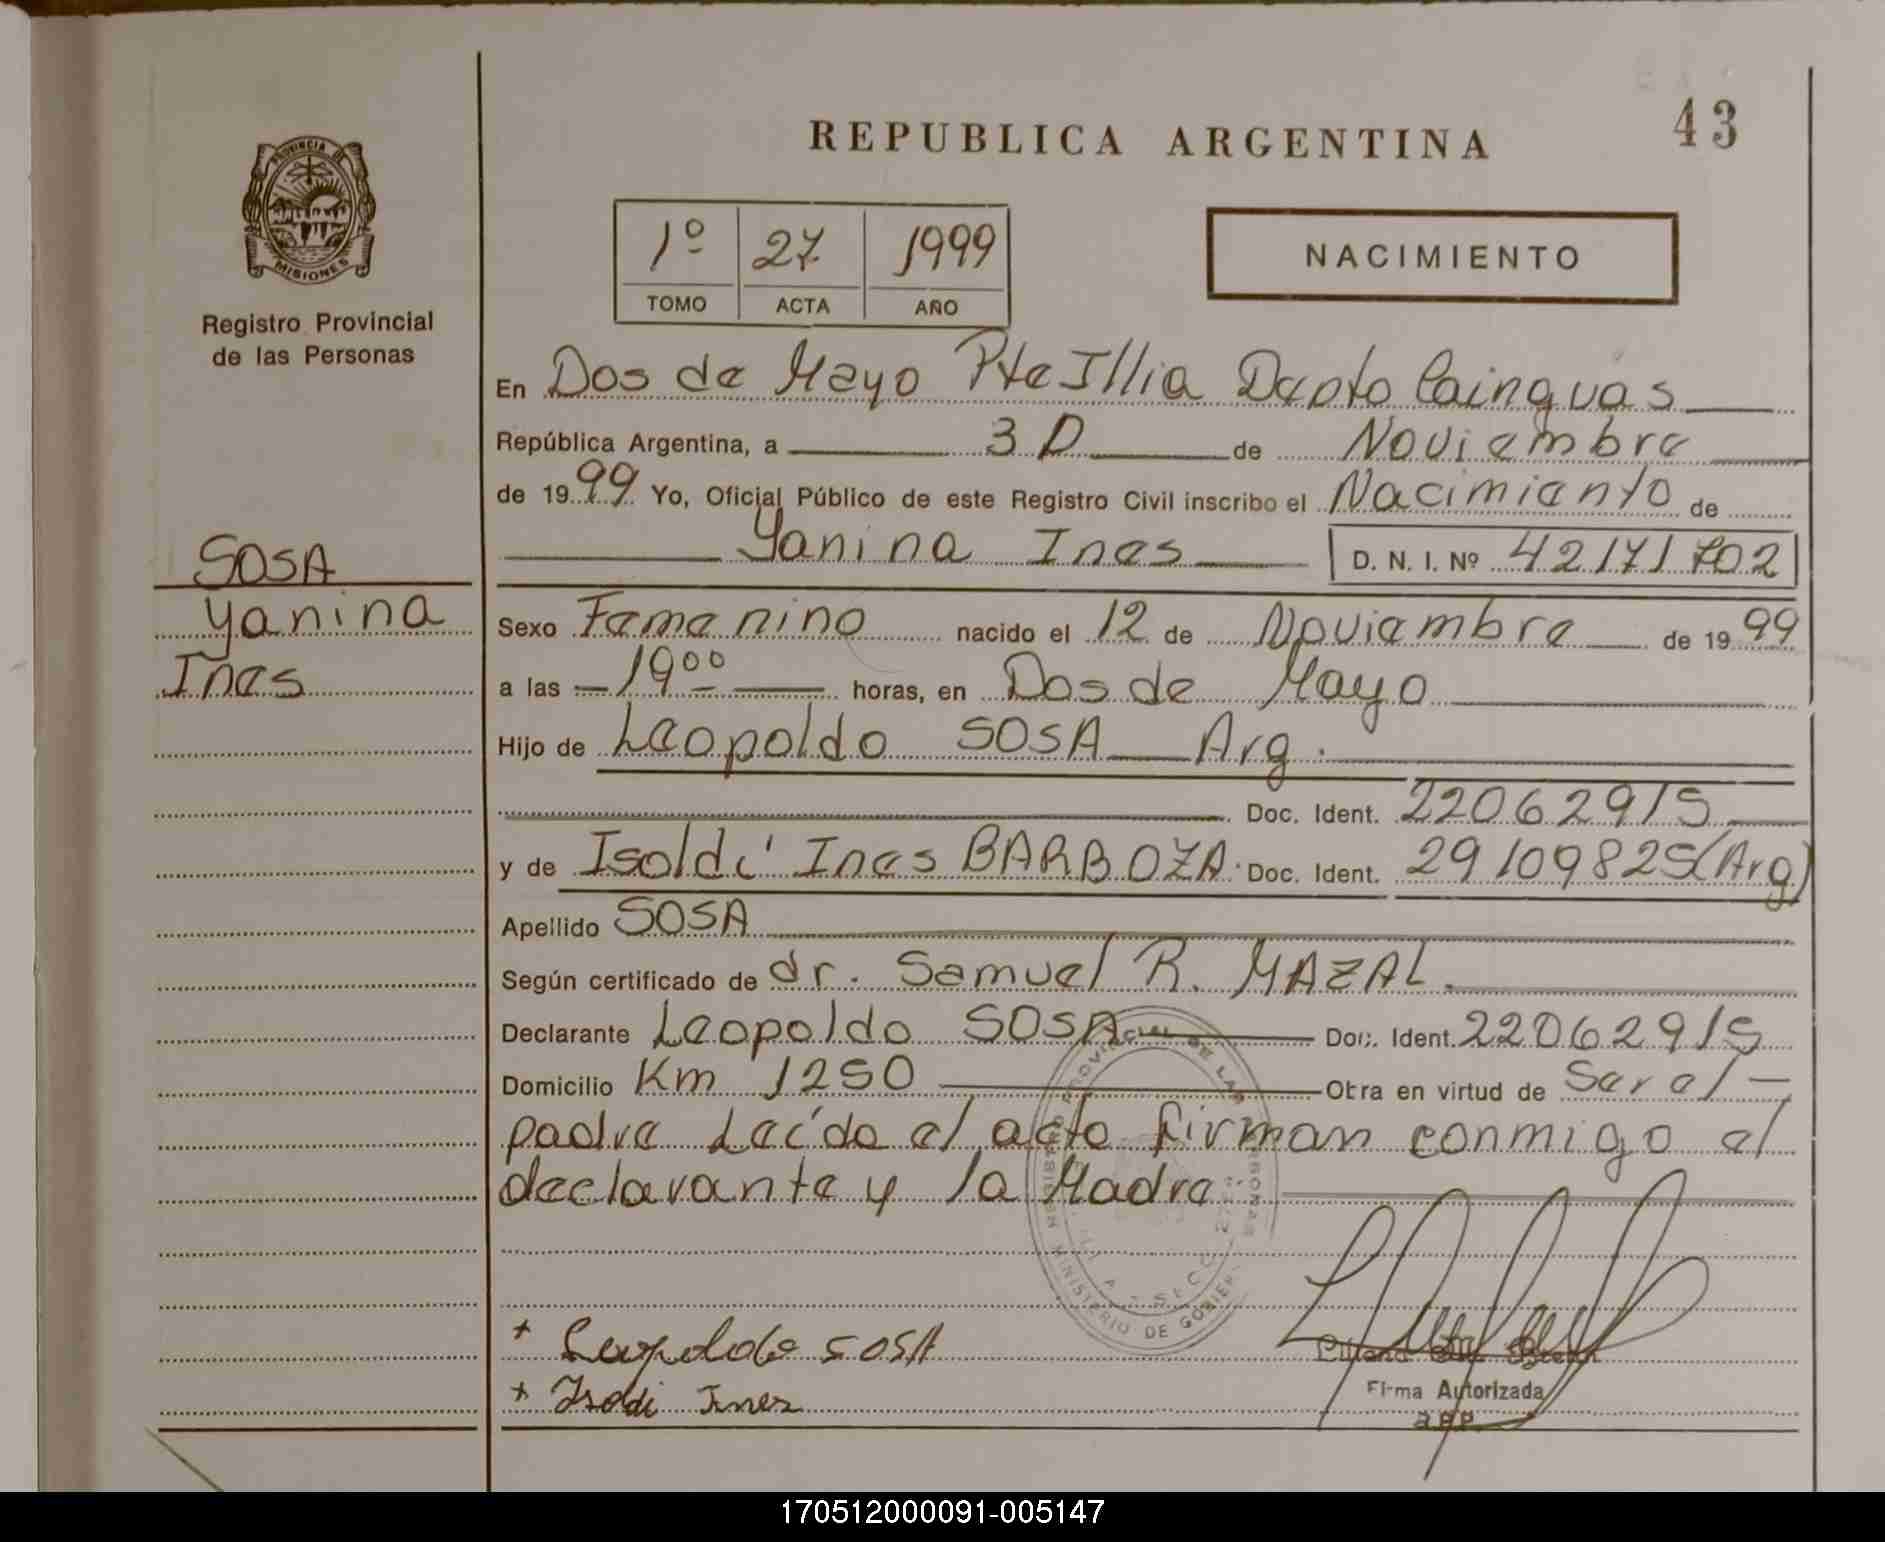 43
REPUBLICA ARGENTINA
PROVINCIA DE
MISIONES
Registro Provincial
de las Personas
1º 27 1999
TOMO ACTA AÑO
NACIMIENTO
En Dos de Mayo Pte Illia Depto Cainguás
República Argentina, a 30 de Noviembre
de 1999 Yo, Oficial Público de este Registro Civil inscribo el Nacimiento de
Yanina Ines D. N. I. Nº 42171702
SOSA
Yanina
Ines
Sexo Femenino nacido el 12 de Noviembre de 1999
a las 19⁰⁰ horas, en Dos de Mayo
Hijo de Leopoldo SOSA Arg.
Doc. Ident. 22062915
y de Isoldi Ines BARBOZA Doc. Ident. 29109825 (Arg)
Apellido SOSA
Según certificado de dr. Samuel R. MAZAL
Declarante Leopoldo SOSA Doc. Ident. 22062915
Domicilio Km 1250 Otra en virtud de Ser al
padre Leída el acto firman conmigo el
declarante y la Madre
REGISTRO PROVINCIAL DE LAS PERSONAS
MINISTERIO DE GOBIER
+ Leopoldo SOSA
+ Isoldi Ines
Firma Autorizada
170512000091-005147